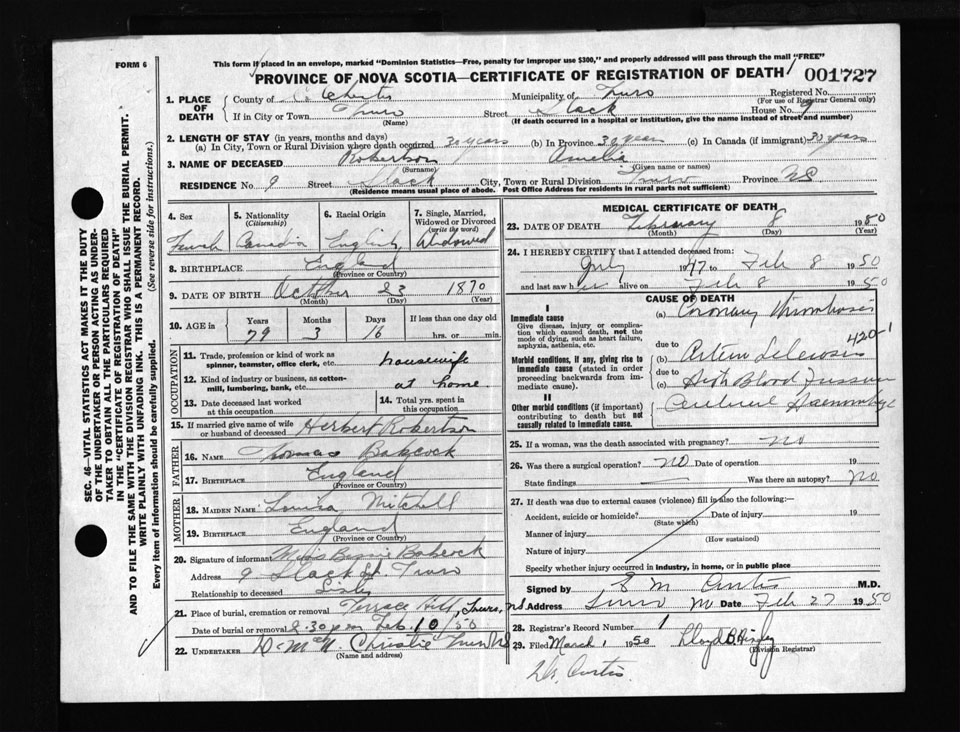 FORM 6
This form if placed in an envelope, marked "Dominion Statistics—Free, penalty for improper use $300," and properly addressed will pass through the mail "FREE"
PROVINCE OF NOVA SCOTIA—CERTIFICATE OF REGISTRATION OF DEATH 001727
1. PLACE OF DEATH
County of Municipality of Truro Registered No.
(For use of Registrar General only)
If in City or Town Truro Street House No. 9
(Name) (If death occurred in a hospital or institution, give the name instead of street and number)
2. LENGTH OF STAY (in years, months and days)
(a) In City, Town or Rural Division where death occurred 30 years (b) In Province 30 years (c) In Canada (if immigrant) 30 years
3. NAME OF DECEASED Robertson Amelia
(Surname) (Given name or names)
RESIDENCE No. 9 Street City, Town or Rural Division Truro Province NS
(Residence means usual place of abode. Post Office Address for residents in rural parts not sufficient)
4. Sex
5. Nationality (Citizenship) Canadian
6. Racial Origin English
7. Single, Married, Widowed or Divorced (write the word) Widowed
8. BIRTHPLACE England
(Province or Country)
9. DATE OF BIRTH October 23 1870
(Month) (Day) (Year)
10. AGE in Years Months Days If less than one day old
79 3 16 hrs. or min.
OCCUPATION
11. Trade, profession or kind of work as spinner, teamster, office clerk, etc. housewife
12. Kind of industry or business, as cotton-mill, lumbering, bank, etc. at home
13. Date deceased last worked at this occupation
14. Total yrs. spent in this occupation
15. If married give name of wife or husband of deceased Herbert Robertson
FATHER
16. NAME Thomas Babcock
17. BIRTHPLACE England
MOTHER
18. MAIDEN NAME Louisa Mitchell
19. BIRTHPLACE England
(Province or Country)
20. Signature of informant Bessie Babcock
Address 9 St. Truro
Relationship to deceased
21. Place of burial, cremation or removal Terrace Hill, Truro, NS
Date of burial or removal 2.30 pm Feb. 10/50
22. UNDERTAKER Christie Truro NS
(Name and address)
MEDICAL CERTIFICATE OF DEATH
23. DATE OF DEATH February 8 1950
(Month) (Day) (Year)
24. I HEREBY CERTIFY that I attended deceased from
July 1947 to Feb 8 1950
and last saw her alive on Feb 8 1950
CAUSE OF DEATH
I
Immediate cause
Give disease, injury or complication which caused death, not the mode of dying, such as heart failure, asphyxia, asthenia, etc.
(a) Coronary Thrombosis
420-1
due to
Morbid conditions, if any, giving rise to immediate cause (stated in order proceeding backwards from immediate cause).
(b) Arterio Sclerosis
due to
(c) High Blood Pressure
II
Other morbid conditions (if important) contributing to death but not causally related to immediate cause.
Cerebral Haemorrhage
25. If a woman, was the death associated with pregnancy? no
26. Was there a surgical operation? no Date of operation 19
State findings — Was there an autopsy? No
27. If death was due to external causes (violence) fill in also the following:—
Accident, suicide or homicide? Date of injury 19
(State which)
Manner of injury
(How sustained)
Nature of injury
Specify whether injury occurred in industry, in home, or in public place
Signed by S M Curtis M.D.
Address Truro Date Feb 27 1950
28. Registrar's Record Number 1
29. Filed March 1 1950 Lloyd
(Division Registrar)
Dr. Curtis.
SEC. 46—VITAL STATISTICS ACT MAKES IT THE DUTY
OF THE UNDERTAKER OR PERSON ACTING AS UNDER-
TAKER TO OBTAIN ALL THE PARTICULARS REQUIRED
IN THE "CERTIFICATE OF REGISTRATION OF DEATH"
AND TO FILE THE SAME WITH THE DIVISION REGISTRAR WHO SHALL ISSUE THE BURIAL PERMIT.
WRITE PLAINLY WITH UNFADING INK. THIS IS A PERMANENT RECORD.
Every item of information should be carefully supplied. (See reverse side for instructions.)